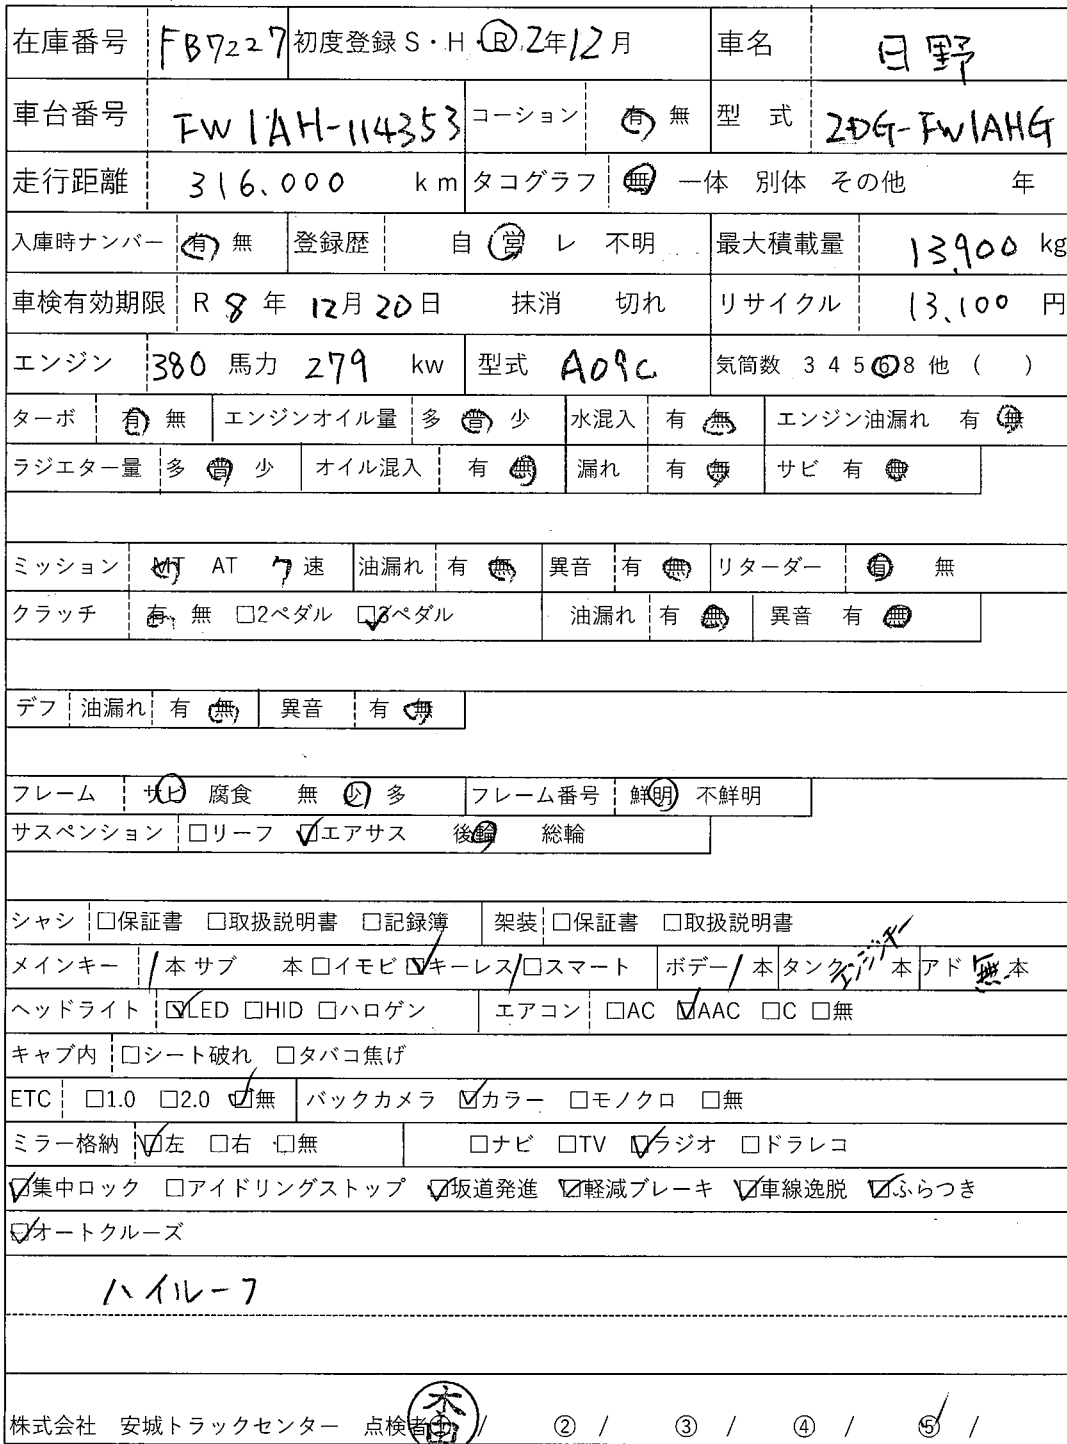 在庫番号 FB7227 初度登録 S・H・R 2年12月 車名 日野
車台番号 FW1AH-114353 コーション 有 無 型 式 2DG-FW1AHG
走行距離 316.000 km タコグラフ 無 一体 別体 その他 年
入庫時ナンバー 有 無 登録歴 自 営 レ 不明 最大積載量 13,900 kg
車検有効期限 R 8 年 12月 20日 抹消 切れ リサイクル 13,100 円
エンジン 380 馬力 279 kw 型式 A09C 気筒数 3 4 5 6 8 他 ( )
ターボ 有 無 エンジンオイル量 多 普 少 水混入 有 無 エンジン油漏れ 有 無
ラジエター量 多 普 少 オイル混入 有 無 漏れ 有 無 サビ 有 無
ミッション MT AT 7 速 油漏れ 有 無 異音 有 無 リターダー 有 無
クラッチ 有 無 □2ペダル ☑3ペダル 油漏れ 有 無 異音 有 無
デフ 油漏れ 有 無 異音 有 無
フレーム サビ 腐食 無 少 多 フレーム番号 鮮明 不鮮明
サスペンション □リーフ ☑エアサス 後輪 総輪
シャシ □保証書 □取扱説明書 □記録簿 架装 □保証書 □取扱説明書
メインキー 1本 サブ 本 □イモビ ☑キーレス/□スマート ボデー 1 本 タンク エンジンキー 本 アド 無 本
ヘッドライト ☑LED □HID □ハロゲン エアコン □AC ☑AAC □C □無
キャブ内 □シート破れ □タバコ焦げ
ETC □1.0 □2.0 ☑無 バックカメラ ☑カラー □モノクロ □無
ミラー格納 ☑左 □右 □無 □ナビ □TV ☑ラジオ □ドラレコ
☑集中ロック □アイドリングストップ ☑坂道発進 ☑軽減ブレーキ ☑車線逸脱 ☑ふらつき
☑オートクルーズ
ハイルーフ
株式会社 安城トラックセンター 点検者① / ② / ③ / ④ / ⑤ /